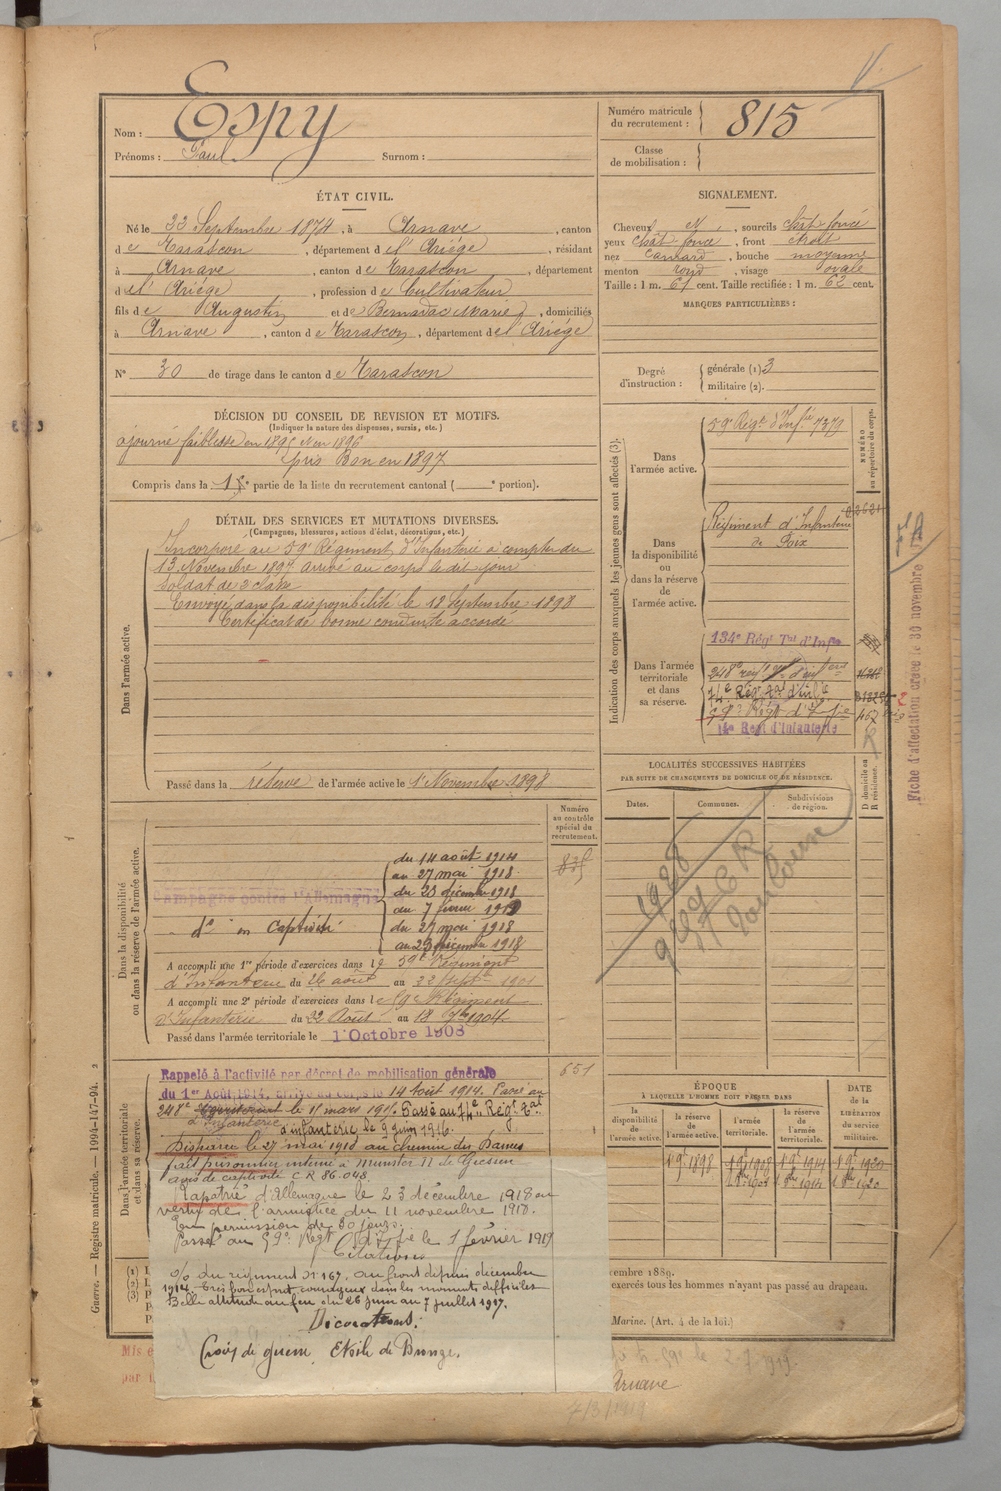 Nom : Espy
Prénoms : Paul Surnom :
Numéro matricule du recrutement : 815
Classe de mobilisation :
ÉTAT CIVIL.
Né le 22 Septembre 1874, à Arnave, canton
de Tarascon, département de l'Ariége, résidant
à Arnave, canton de Tarascon, département
de l'Ariége, profession de Cultivateur
fils de Augustin et de Bernadac Marie, domiciliés
à Arnave, canton de Tarascon, département de l'Ariége
N° 30 de tirage dans le canton de Tarascon
SIGNALEMENT.
Cheveux N, sourcils chât foncé
yeux chât foncé, front étroit
nez camard, bouche moyenne
menton rond, visage ovale
Taille : 1 m. 61 cent. Taille rectifiée : 1 m. 62 cent.
MARQUES PARTICULIÈRES :
Degré d'instruction : générale (1) 3
militaire (2).
DÉCISION DU CONSEIL DE REVISION ET MOTIFS.
(Indiquer la nature des dispenses, sursis, etc.)
ajourné faiblesse en 1895 et en 1896
pris Bon en 1897
Compris dans la 1e partie de la liste du recrutement cantonal ( e portion).
DÉTAIL DES SERVICES ET MUTATIONS DIVERSES.
(Campagnes, blessures, actions d'éclat, décorations, etc.)
Dans l'armée active.
Incorporé au 59e Régiment d'Infanterie à compter du
13 Novembre 1897 arrivé au corps le dit jour
soldat de 2e classe
Envoyé dans la disponibilité le 18 Septembre 1898
Certificat de bonne conduite accordé
Passé dans la réserve de l'armée active le 1er Novembre 1898
Indication des corps auxquels les jeunes gens sont affectés (3).
Dans l'armée active.
59e Régt d'Infie 7379
NUMÉRO au répertoire du corps.
Dans la disponibilité ou dans la réserve de l'armée active.
Régiment d'Infanterie
de Foix
Dans l'armée territoriale et dans sa réserve.
134e Régt Tal d'Infie
74e Rég. Tal d'Infie
14e Regt d'Infanterie
Fiche d'affectation créée le 30 novembre
LOCALITÉS SUCCESSIVES HABITÉES
PAR SUITE DE CHANGEMENTS DE DOMICILE OU DE RÉSIDENCE.
Dates. Communes. Subdivisions de région.
D domicile ou R résidence.
1928
Toulouse
Numéro au contrôle spécial du recrutement.
Dans la disponibilité ou dans la réserve de l'armée active.
Campagne contre l'Allemagne
du 14 août 1914
au 27 mai 1918
du 23 décembre 1918
au 7 février 1919
do en Captivité
du 27 mai 1918
au 23 décembre 1918
A accompli une 1re période d'exercices dans le 59e Régiment
d'Infanterie du 26 août au 22 Septe 1901
A accompli une 2e période d'exercices dans le 59e Régiment
d'Infanterie du 22 Août au 18 7bre 1904
Passé dans l'armée territoriale le 1er Octobre 1908
Dans l'armée territoriale et dans sa réserve.
651
Rappelé à l'activité par décret de mobilisation générale
du 1er Août 1914, arrivé au corps le 14 Août 1914. Passé au
248e Territorial le 11 mars 1916 Passé au 74e Régt Tal
d'Infanterie
d'infanterie le 9 juin 1916.
Disparu le 27 mai 1918 au chemin des Dames
fait prisonnier interné à Munster
avis de captivité C.R 86.048
Rapatrié d'Allemagne le 23 décembre 1918 en
vertu de l'armistice du 11 novembre 1918.
En permission de 30 jours.
Passé au 59e Regt d'Infie le 1 février 1919
Citations
O/ du régiment N° 167, au front depuis décembre
1914. Très bon esprit, courageux dans les moments difficiles
Belle attitude au feu du 26 juin au 7 juillet 1917.
Décorations:
Croix de guerre Etoile de Bronze.
ÉPOQUE
À LAQUELLE L'HOMME DOIT PASSER DANS
la disponibilité de l'armée active.
la réserve de l'armée active.
l'armée territoriale.
la réserve de l'armée territoriale.
DATE DE LA LIBÉRATION DU SERVICE MILITAIRE.
vembre 1889.
exercés tous les hommes n'ayant pas passé au drapeau.
Marine. (Art. 4 de la loi.)
Arnave
7/3/1919
Guerre. — Registre matricule. — 1994-147-94. 2